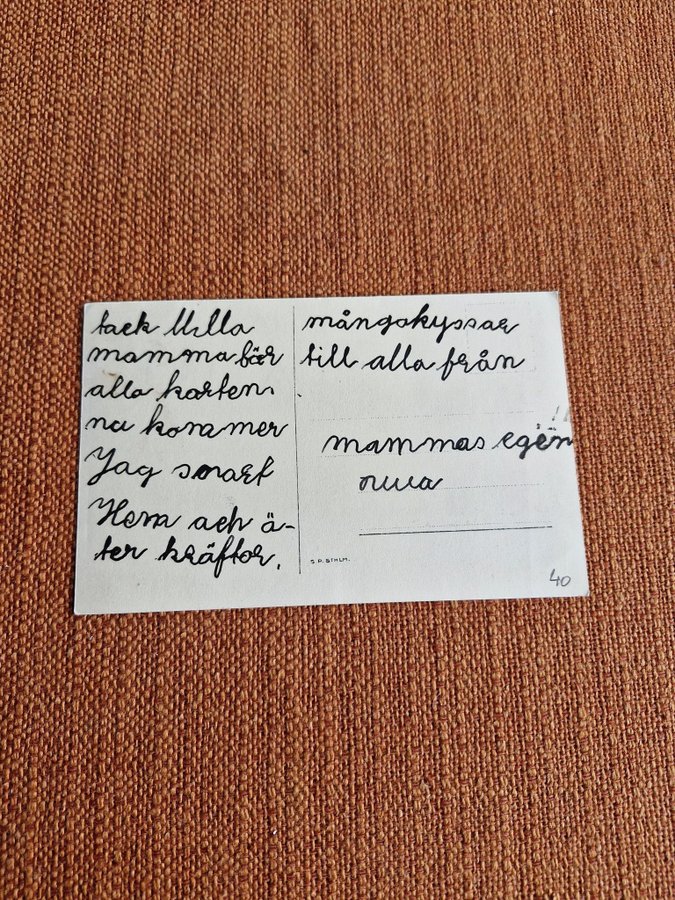 tack Ulla
mamma för
alla korten.
nu kommer
Jag snart
Hem och ä-
ter kräftor.
mångakyssar
till alla från
mammas egen
S.P. STHLM.
40